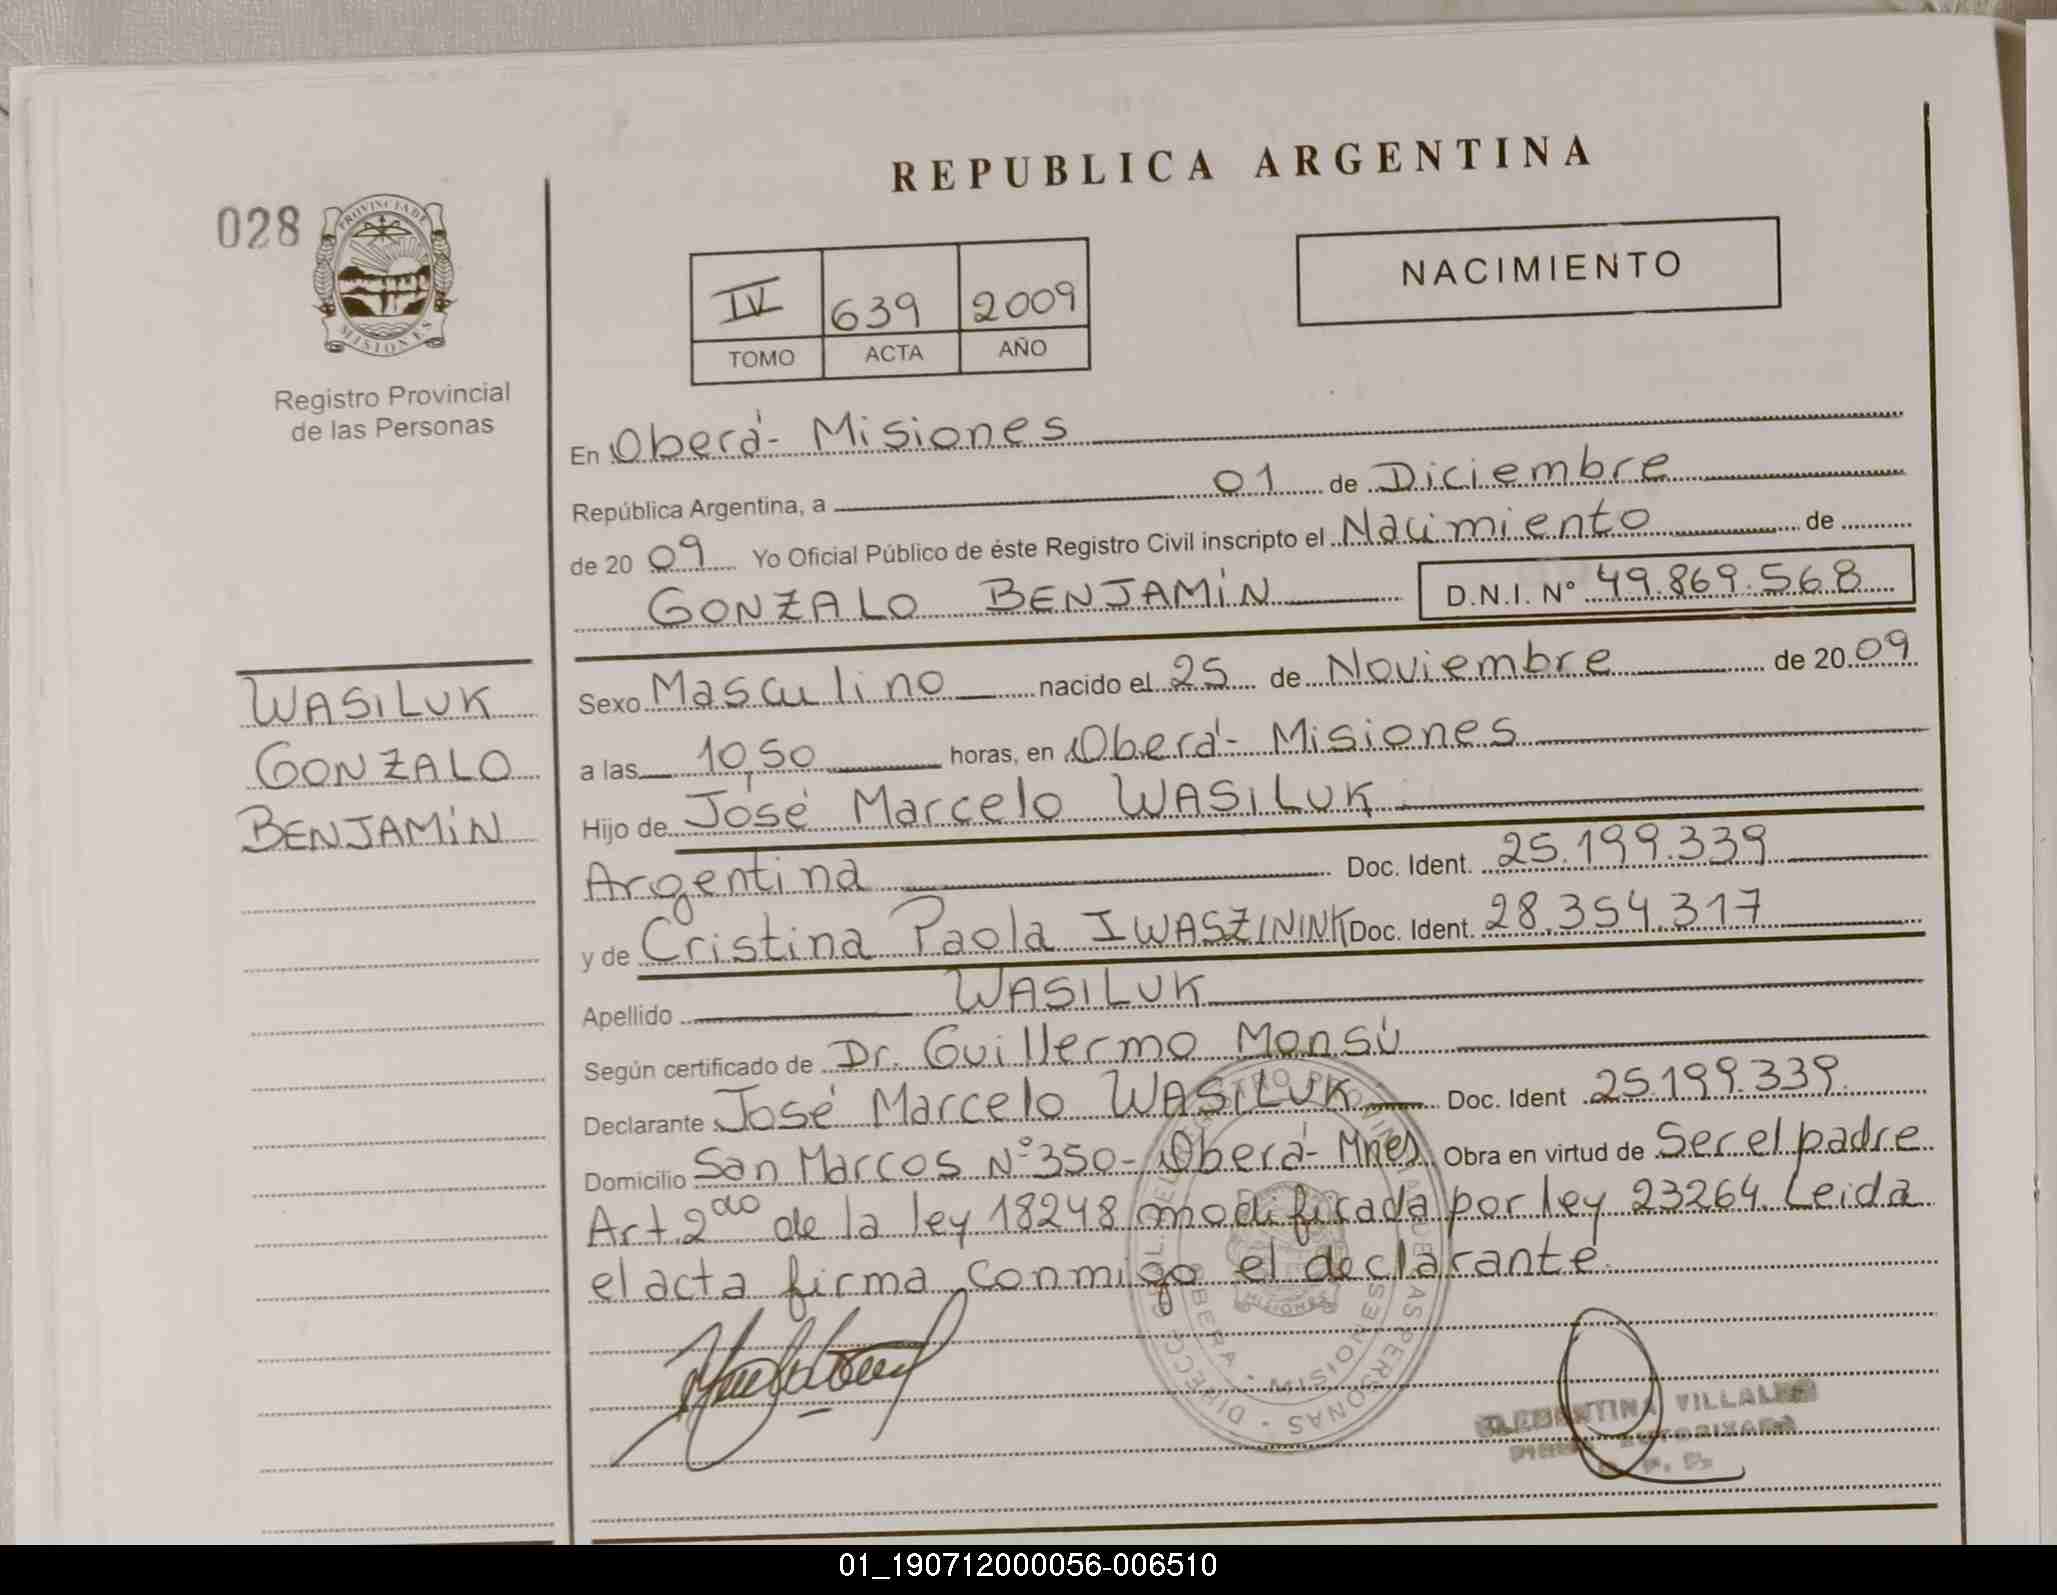 REPUBLICA ARGENTINA
028
PROVINCIA DE
MISIONES
Registro Provincial
de las Personas
NACIMIENTO
IV 639 2009
TOMO ACTA AÑO
En Oberá - Misiones
República Argentina, a 01 de Diciembre
de 20 09 Yo Oficial Público de éste Registro Civil inscripto el Nacimiento de
GONZALO BENJAMÍN D.N.I. Nº 49.869.568
WASILUK
GONZALO
BENJAMÍN
Sexo Masculino nacido el 25 de Noviembre de 20 09
a las 10,50 horas, en Oberá - Misiones
Hijo de José Marcelo WASILUK
Argentina Doc. Ident. 25.199.339
y de Cristina Paola IWASZININK Doc. Ident. 28.354.317
Apellido WASILUK
Según certificado de Dr. Guillermo Monsú
Declarante José Marcelo WASILUK Doc. Ident 25.199.339.
Domicilio San Marcos Nº 350 - Oberá - Mnes Obra en virtud de Ser el padre
Art 2do de la ley 18248 modificada por ley 23264 Leida
el acta firma conmigo el declarante.
REGISTRO PROVINCIAL DE LAS PERSONAS
OBERA - MISIONES
MISIONES
CLEMENTINA
01_190712000056-006510